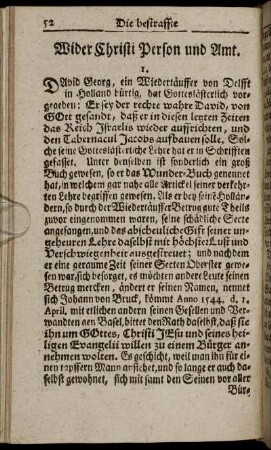 52 Die bestraffte
Wider Christi Person und Amt.
1.
DAvid Georg, ein Wiedertäuffer von Delfft
in Holland bürtig, hat Gotteslästerlich vor-
gegeben: Er sey der rechte wahre David, von
GOtt gesandt, daß er in diesen letzten Zeiten
das Reich Israelis wieder auffrichten, und
den Tabernacul Jacobs aufbauen solle. Sol-
che seine Gotteslästerliche Lehre hat er in Schrifften
gefasset. Unter denselben ist sonderlich ein groß
Buch gewesen, so er das Wunder-Buch genennet
hat, in welchem gar nahe alle Artickel seiner verkehr-
ten Lehre begriffen gewesen. Als er bey seinē Hollän-
dern, so durch der Wiedertäuffer Betrug gute Theils
zuvor eingenommen waren, seine schädliche Secte
angefangen, und das abscheuliche Gifft seiner un-
geheuren Lehre daselbst mit höchster Lust und
Verschwiegenheit ausgestreuet; und nachdem
er eine geraume Zeit seiner Secten Oberster gewe-
sen war, sich besorget, es möchten andere Leute seinen
Betrug mercken, ändert er seinen Namen, nennet
sich Johann von Bruck, kömmt Anno 1544. d. 1.
April, mit etlichen andern seinen Gesellen und Ver-
wandten gen Basel, bittet den Rath daselbst, daß sie
ihn um GOttes, Christi JEsu und seines hei-
ligen Evangelii willen zu einem Bürger an-
nehmen wolten. Es geschicht, weil man ihn für ei-
nen tapffern Mann ansiehet, und so lange er auch da-
selbst gewohnet, sich mit samt den Seinen vor aller
Bür-